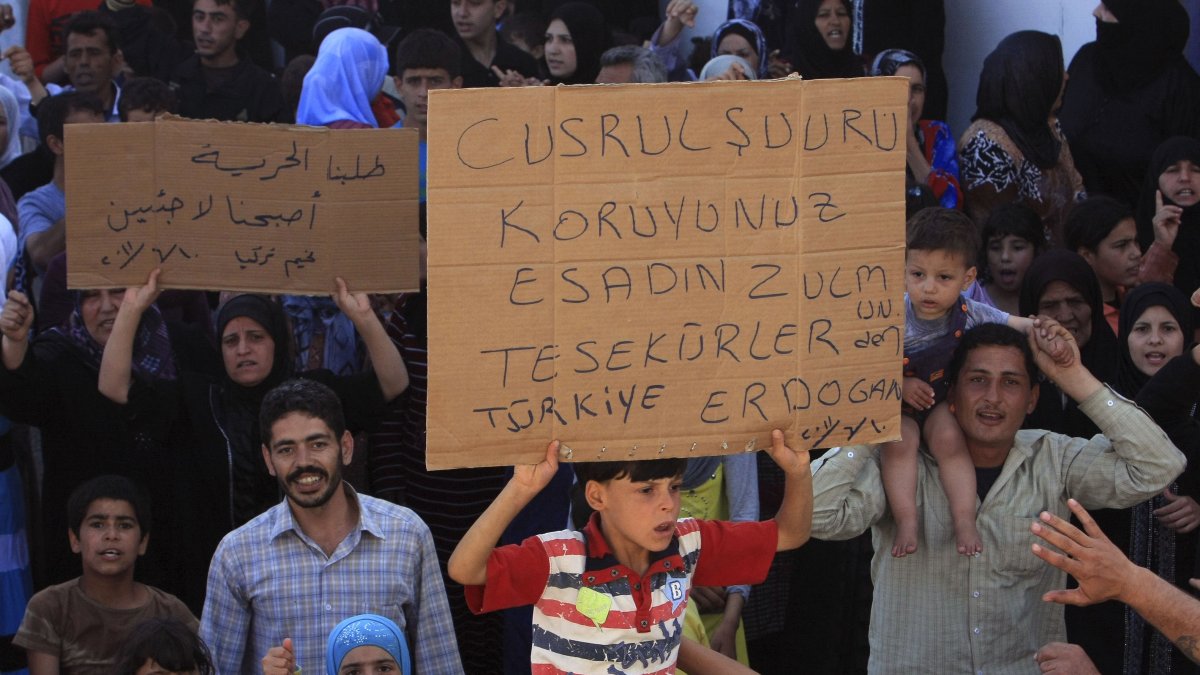 طلبنا الحرية
أصبحنا لاجئين
مخيم تركيا ٢٠١١/٦/١٠
CUSRUL ŞUURU
KORUYUNUZ
ESADIN ZULM
ÜN
den
TESEKÜRLER
TÜRKİYE ERDOGAN
٢٠١١/٦/١٠